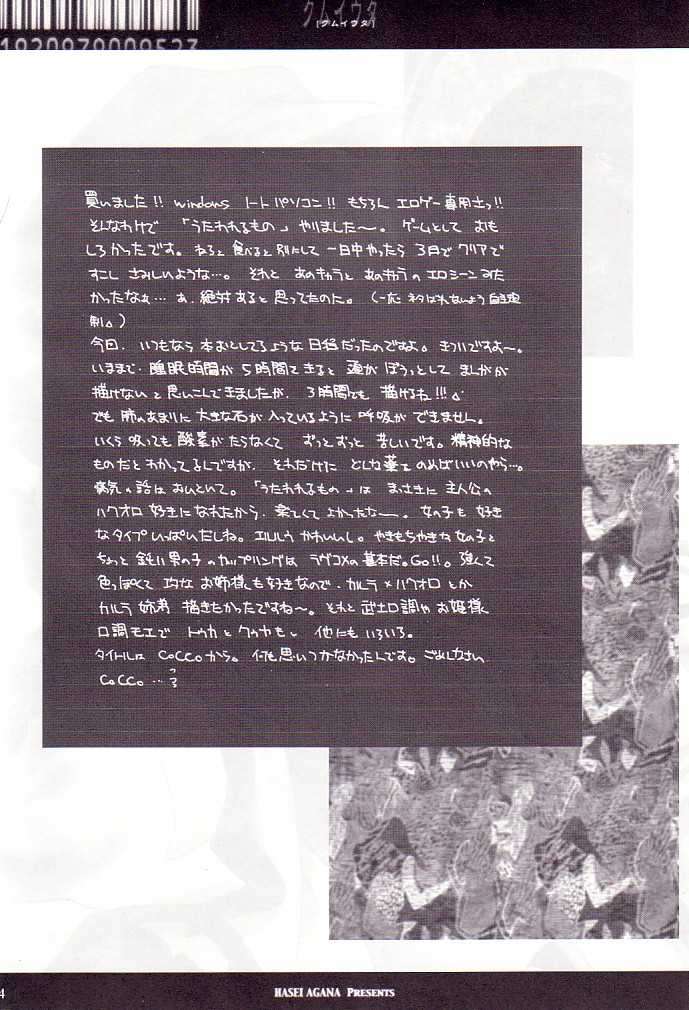 クムイウタ
[クムイウタ]
1920979009523
買いました!! windows ノートパソコン!! もちろん エロゲー専用さっ!!
そんなわけで 「うたわれるもの」 やりました〜。 ゲームとして おも
しろかったです。 ねると 食べると 別にして 一日中やったら 3日で クリアで
すこし さみしいような…。 それと あのキャラと あのキャラの エロシーン みた
かったなぁ… あ、絶対あると思ってたのた。 (一応 ネタばれないよう 自主規
制。)
今回、いつもなら 本おとしてるような 日程だったのですよ。 きついですよ〜。
いままで、睡眠時間が 5時間できると 頭が ぼうっとして まんがが
描けないと 思いこんできましたが、 3時間でも 描けるね!!!
でも 肺のあまりに 大きな石が 入っているように 呼吸が できません。
いくら 吸っても 酸素が たらなくて ずっとずっと 苦しいです。 精神的な
ものだと わかってるんですが、 それだけに どんな薬を のめばいいのやら…。
病気の話は おいといて。 「うたわれるもの」は まっさきに 主人公の
ハクオロ 好きになれたから、 楽しくて よかったなー。 女の子も 好き
なタイプ いっぱいだしね。 エルルゥ かわいいし。 やきもちやきな 女の子と
ちょっと 鈍い 男の子の カップリングは ラヴコメの 基本だ。Go!!。 強くて
色っぽくて な お姉様も好きなので、カルラ×ハクオロ とか
カルラ 姉 描きたかったですね〜。 それと 武士口調や お姫様
口調モエで トウカと クーヤも。 他にも いろいろ。
タイトルは Coccoから。 何も思いつかなかったんです。 ごめんなさい
Cocco…
4
HASEI AGANA PRESENTS